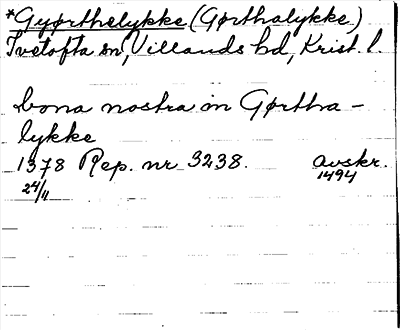 *Gyørthelykke (Gørthalykke)
Tvetofta sn, Villands hd, Krist. l.
bona nostra in Gørtha-
lykke
1378 Rep. nr 3238. avskr.
24/11 1494